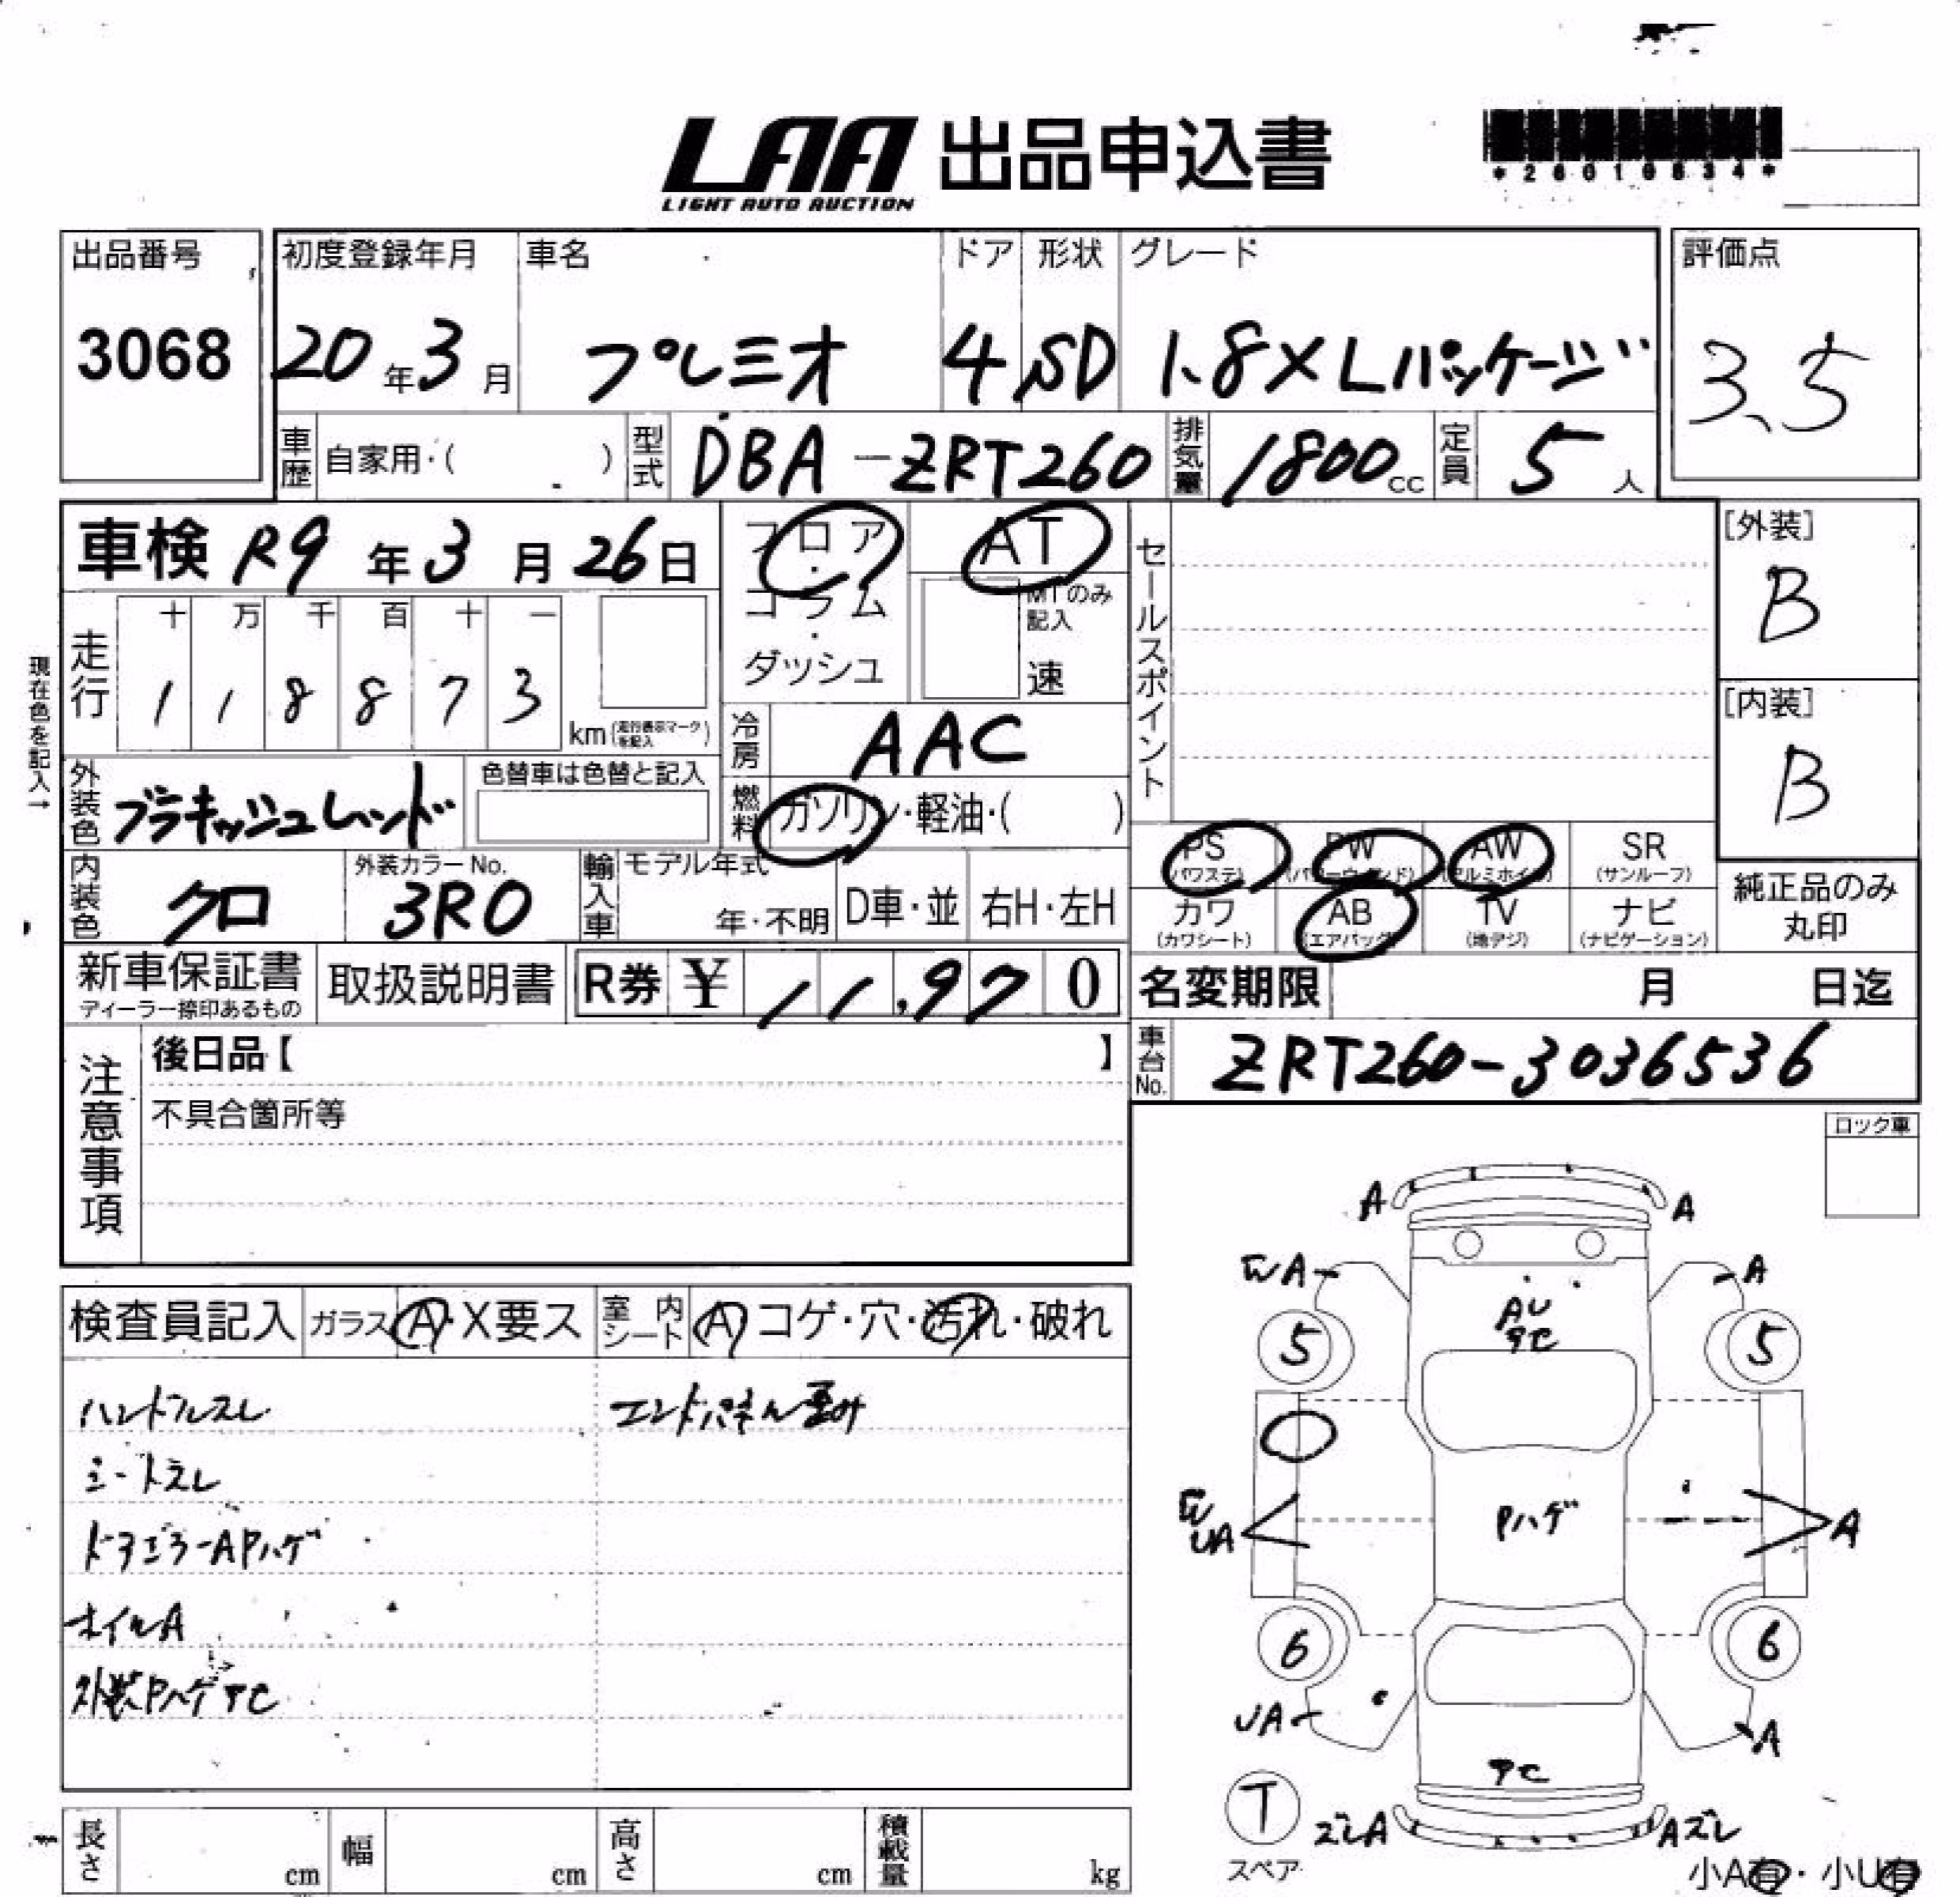 LAA 出品申込書
LIGHT AUTO AUCTION
出品番号 初度登録年月 車名 ドア 形状 グレード 評価点
3068 20年3月 プレミオ 4 SD 1.8X Lパッケージ 3.5
車歴 自家用・( ) 型式 DBA-ZRT260 排気量 1800cc 定員 5人
車検 R9年3月26日 フロア・コラム・ダッシュ AT セールスポイント [外装]
MTのみ記入 速 B
十 万 千 百 十 一
走行 1 1 8 8 7 3 km(走行表示マークを記入) [内装]
現在色を記入→ 冷房 AAC B
外装色 ブラキッシュレッド 色替車は色替と記入 燃料 ガソリン・軽油・( )
PS (パワステ) PW (パワーウィンド) AW (アルミホイル) SR (サンルーフ)
内装色 クロ 外装カラーNo. 3R0 輸入車 モデル年式 年・不明 D車・並 右H・左H
カワ (カワシート) AB (エアバッグ) TV (地デジ) ナビ (ナビゲーション) 純正品のみ丸印
新車保証書 ディーラー捺印あるもの 取扱説明書 R券 ¥ 11,970 名変期限 月 日迄
注意事項 後日品【 】 車台No. ZRT260-3036536
不具合箇所等
ロック車
A A
A A
AU
5 5
検査員記入 ガラス A・X要ス 室内シート A コゲ・穴・汚れ・破れ
ハンドルスレ エンドパネル歪み
シートスレ
ドアミラーAPハゲ
UA Pハゲ A
ホイルA
6 6
外装Pハゲ
UA A
T
スペア
ズレA Aズレ
長さ cm 幅 cm 高さ cm 積載量 kg
小A有・小U有